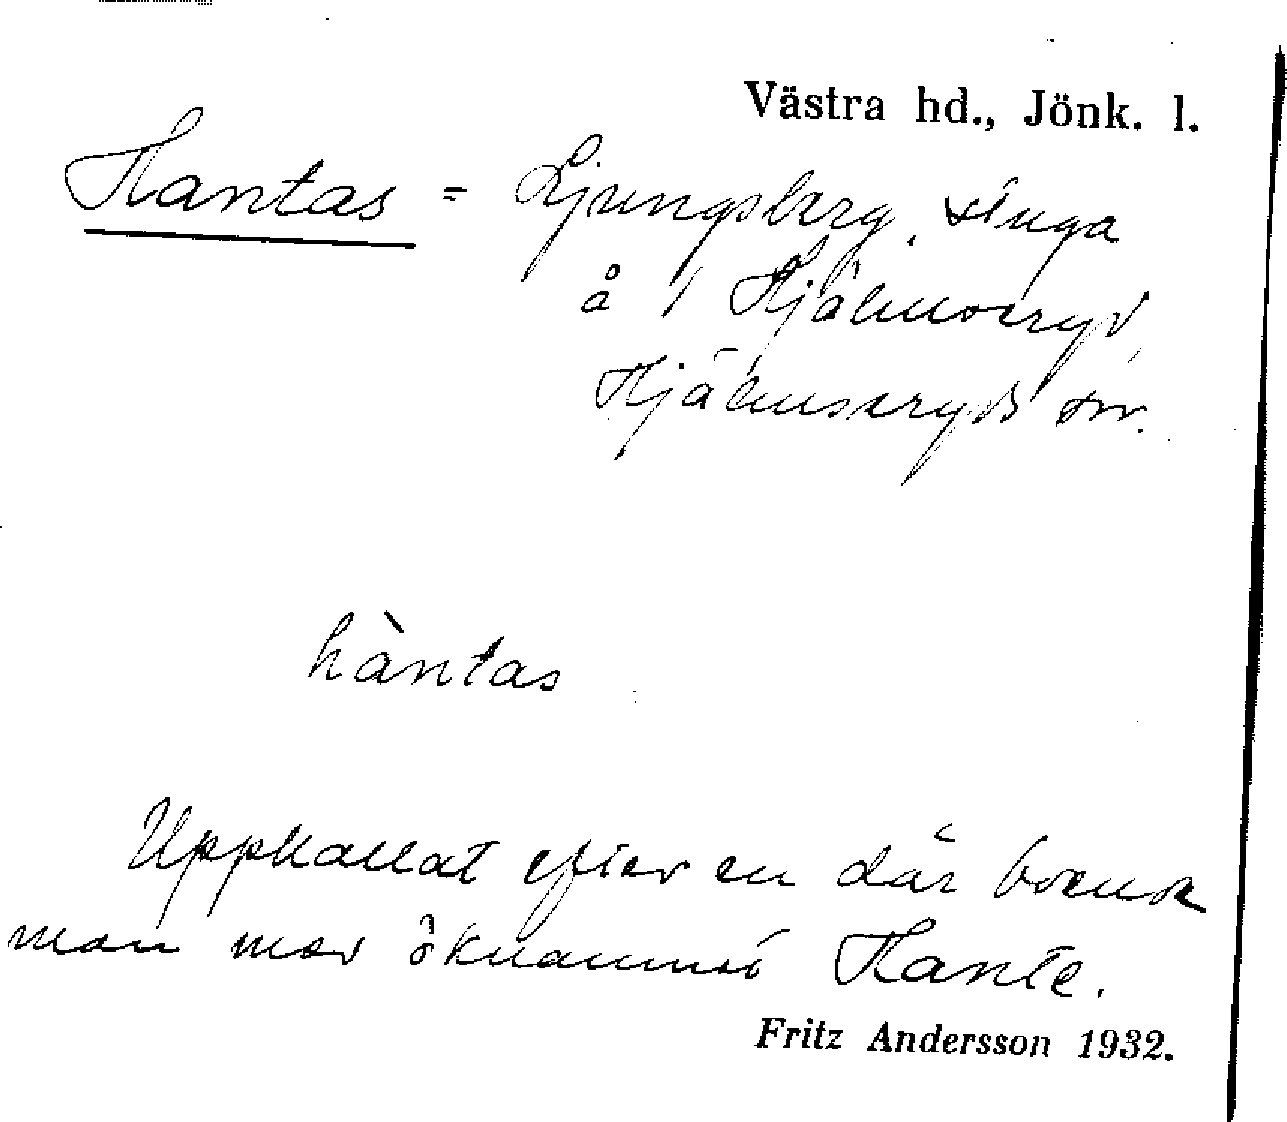 Västra hd., Jönk. l.
Hantas = Ljungsberg, stuga
å 1 Hjälmseryd,
Hjälmseryds sn.
hàntas
Uppkallat efter en där boende
man med öknamnet Hante.
Fritz Andersson 1932.